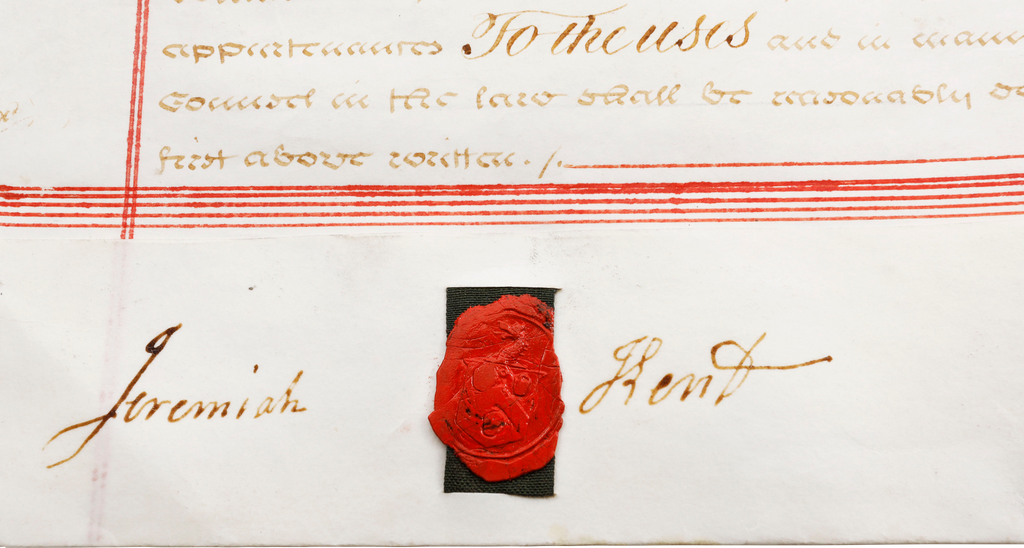 appurtenances To the uses and in mann
Counsel in the law shall be reasonably
first above written. /.
Jeremiah Kent